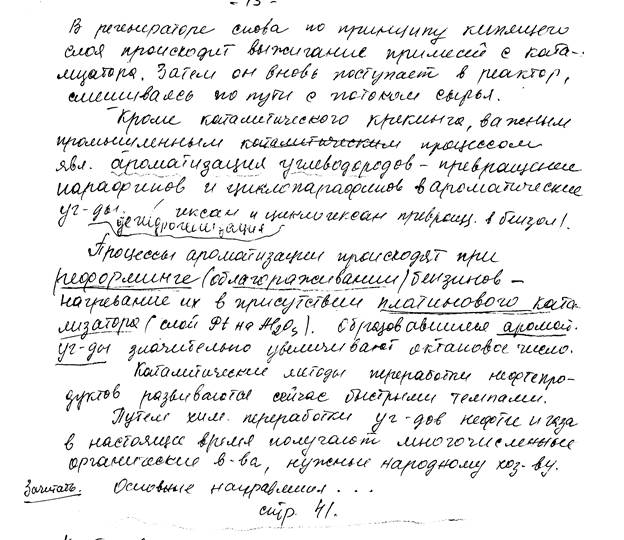 - 13 -
В регенераторе снова по принципу кипящего
слоя происходит выжигание примесей с ката-
лизатора. Затем он вновь поступает в реактор,
смешиваясь по пути с потоком сырья.
Кроме каталитического крекинга, важным
промышленным каталитическим процессом
явл. ароматизация углеводородов - превращение
парафинов и циклопарафинов в ароматические
уг-ды. /гексан и циклогексан превращ. в бензол/.
дегидрогенизация
Процессы ароматизации происходят при
реформинге (облагораживании) бензинов -
нагревание их в присутствии платинового ката-
лизатора (слой Pt на Al2O3). Образовавшиеся аромат.
уг-ды значительно увеличивают октановое число.
Каталитические методы переработки нефтепро-
дуктов развиваются сейчас быстрыми темпами.
Путем хим. переработки уг-дов нефти и газа
в настоящее время получают многочисленные
органические в-ва, нужные народному хоз-ву.
Зачитать. Основные направления . . .
стр. 41.